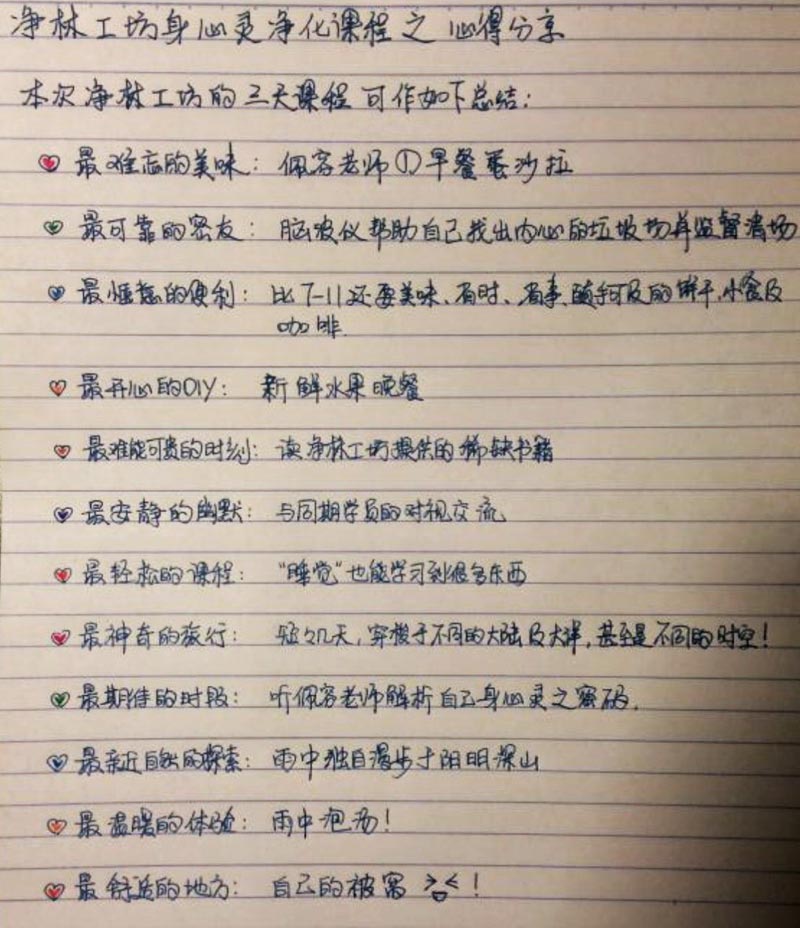 净林工坊身心灵净化课程之心得分享
本次净林工坊的三天课程可作如下总结：
最难忘的美味：佩容老师①早餐蛋沙拉
最可靠的密友：脑波仪帮助自己找出内心的垃圾场并监督清场
最惬意的便利：比7-11还要美味、有时、省事、随手可及的饼干、小食及
咖啡.
最开心的DIY：新鲜水果晚餐
最难能可贵的时刻：读净林工坊提供的稀缺书籍
最安静的幽默：与同期学员的对视交流
最轻松的课程："睡觉"也能学习到很多东西
最神奇的旅行：短々几天，穿梭于不同的大陆及大洋，甚至是不同的时空！
最期待的时段：听佩容老师解析自己身心灵之密码.
最亲近自然的探索：雨中独自漫步于阳明深山
最温暖的体验：雨中泡汤！
最舒适的地方：自己的被窝！